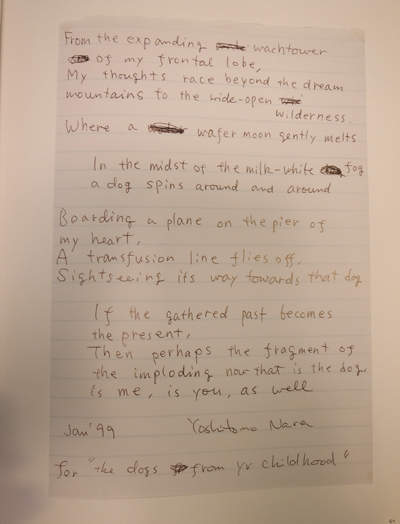 From the expanding wachtower
of my frontal lobe,
My thoughts race beyond the dream
mountains to the wide-open
wilderness
Where a wafer moon gently melts
In the midst of the milk-white fog
a dog spins around and around
Boarding a plane on the pier of
my heart,
A transfusion line flies off.
Sightseeing its way towards that dog
If the gathered past becomes
the present,
Then perhaps the fragment of
the imploding now that is the dog
is me, is you, as well
Jan '99 Yoshitomo Nara
for "the dogs from yr childhood"